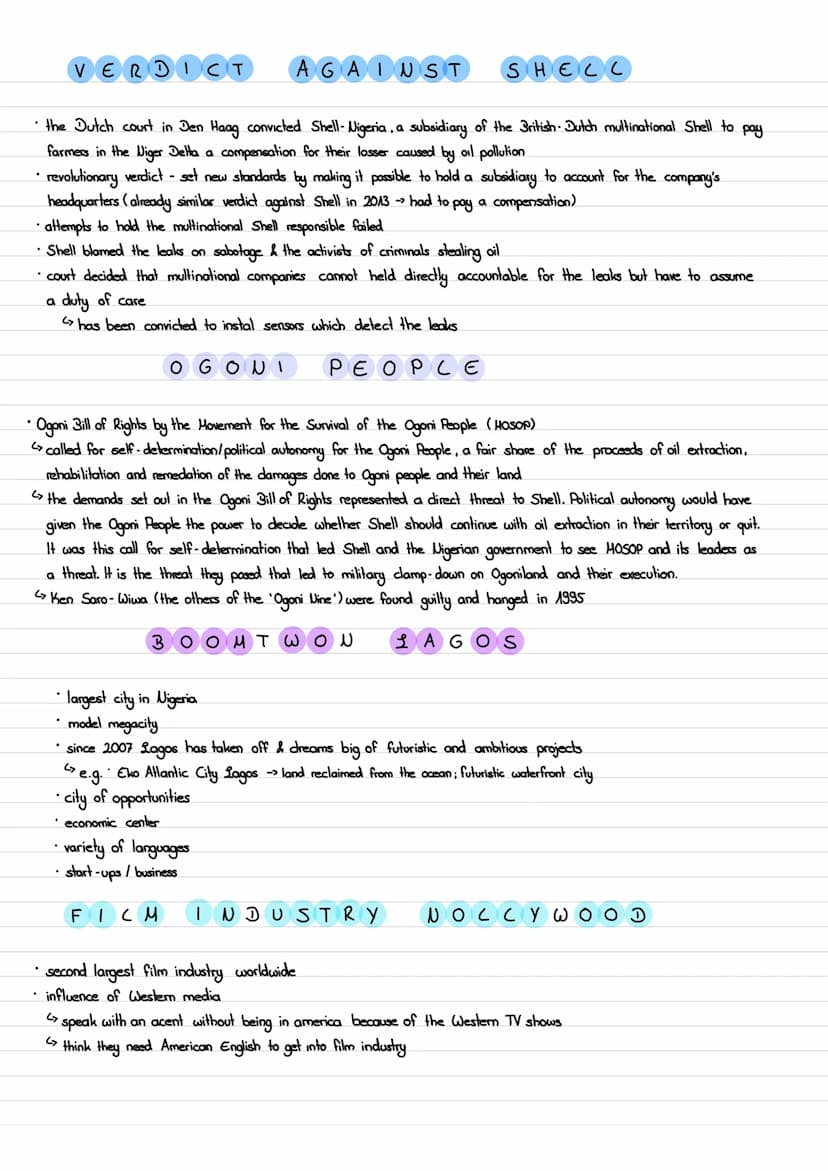 VERDICT AGAINST SHELL
· the Dutch court in Den Haag convicted Shell-Nigeria, a subsidiary of the British-Dutch multinational Shell to pay
farmers in the Niger Delta a compensation for their losser caused by oil pollution
· revolutionary verdict - set new standards by making it possible to hold a subsidiary to account for the company's
headquarters (already similar verdict against Shell in 2013 → had to pay a compensation)
· attempts to hold the multinational Shell responsible failed
· Shell blamed the leaks on sabotage & the activists of criminals stealing oil
· court decided that multinational companies cannot held directly accountable for the leaks but have to assume
a duty of care
↳ has been convicted to instal sensors which detect the leaks
OGONI PEOPLE
· Ogoni Bill of Rights by the Movement for the Survival of the Ogoni People (MOSOP)
↳ called for self-determination/political autonomy for the Ogoni People, a fair share of the proceeds of oil extraction,
rehabilitation and remedation of the damages done to Ogoni people and their land
↳ the demands set out in the Ogoni Bill of Rights represented a direct threat to Shell. Political autonomy would have
given the Ogoni People the power to decide whether Shell should continue with oil extraction in their territory or quit.
It was this call for self-determination that led Shell and the Nigerian government to see MOSOP and its leaders as
a threat. It is the threat they posed that led to military clamp-down on Ogoniland and their execution.
↳ Ken Saro-Wiwa (the others of the 'Ogoni Nine') were found guilty and hanged in 1995
BOOMTWON LAGOS
· largest city in Nigeria
· model megacity
· since 2007 Lagos has taken off & dreams big of futuristic and ambitious projects
↳ e.g. · Eko Atlantic City Lagos → land reclaimed from the ocean; futuristic waterfront city
· city of opportunities
· economic center
· variety of languages
· start-ups / business
FILM INDUSTRY NOLLYWOOD
· second largest film industry worldwide
· influence of Western media
↳ speak with an acent without being in america because of the Western TV shows
↳ think they need American English to get into film industry